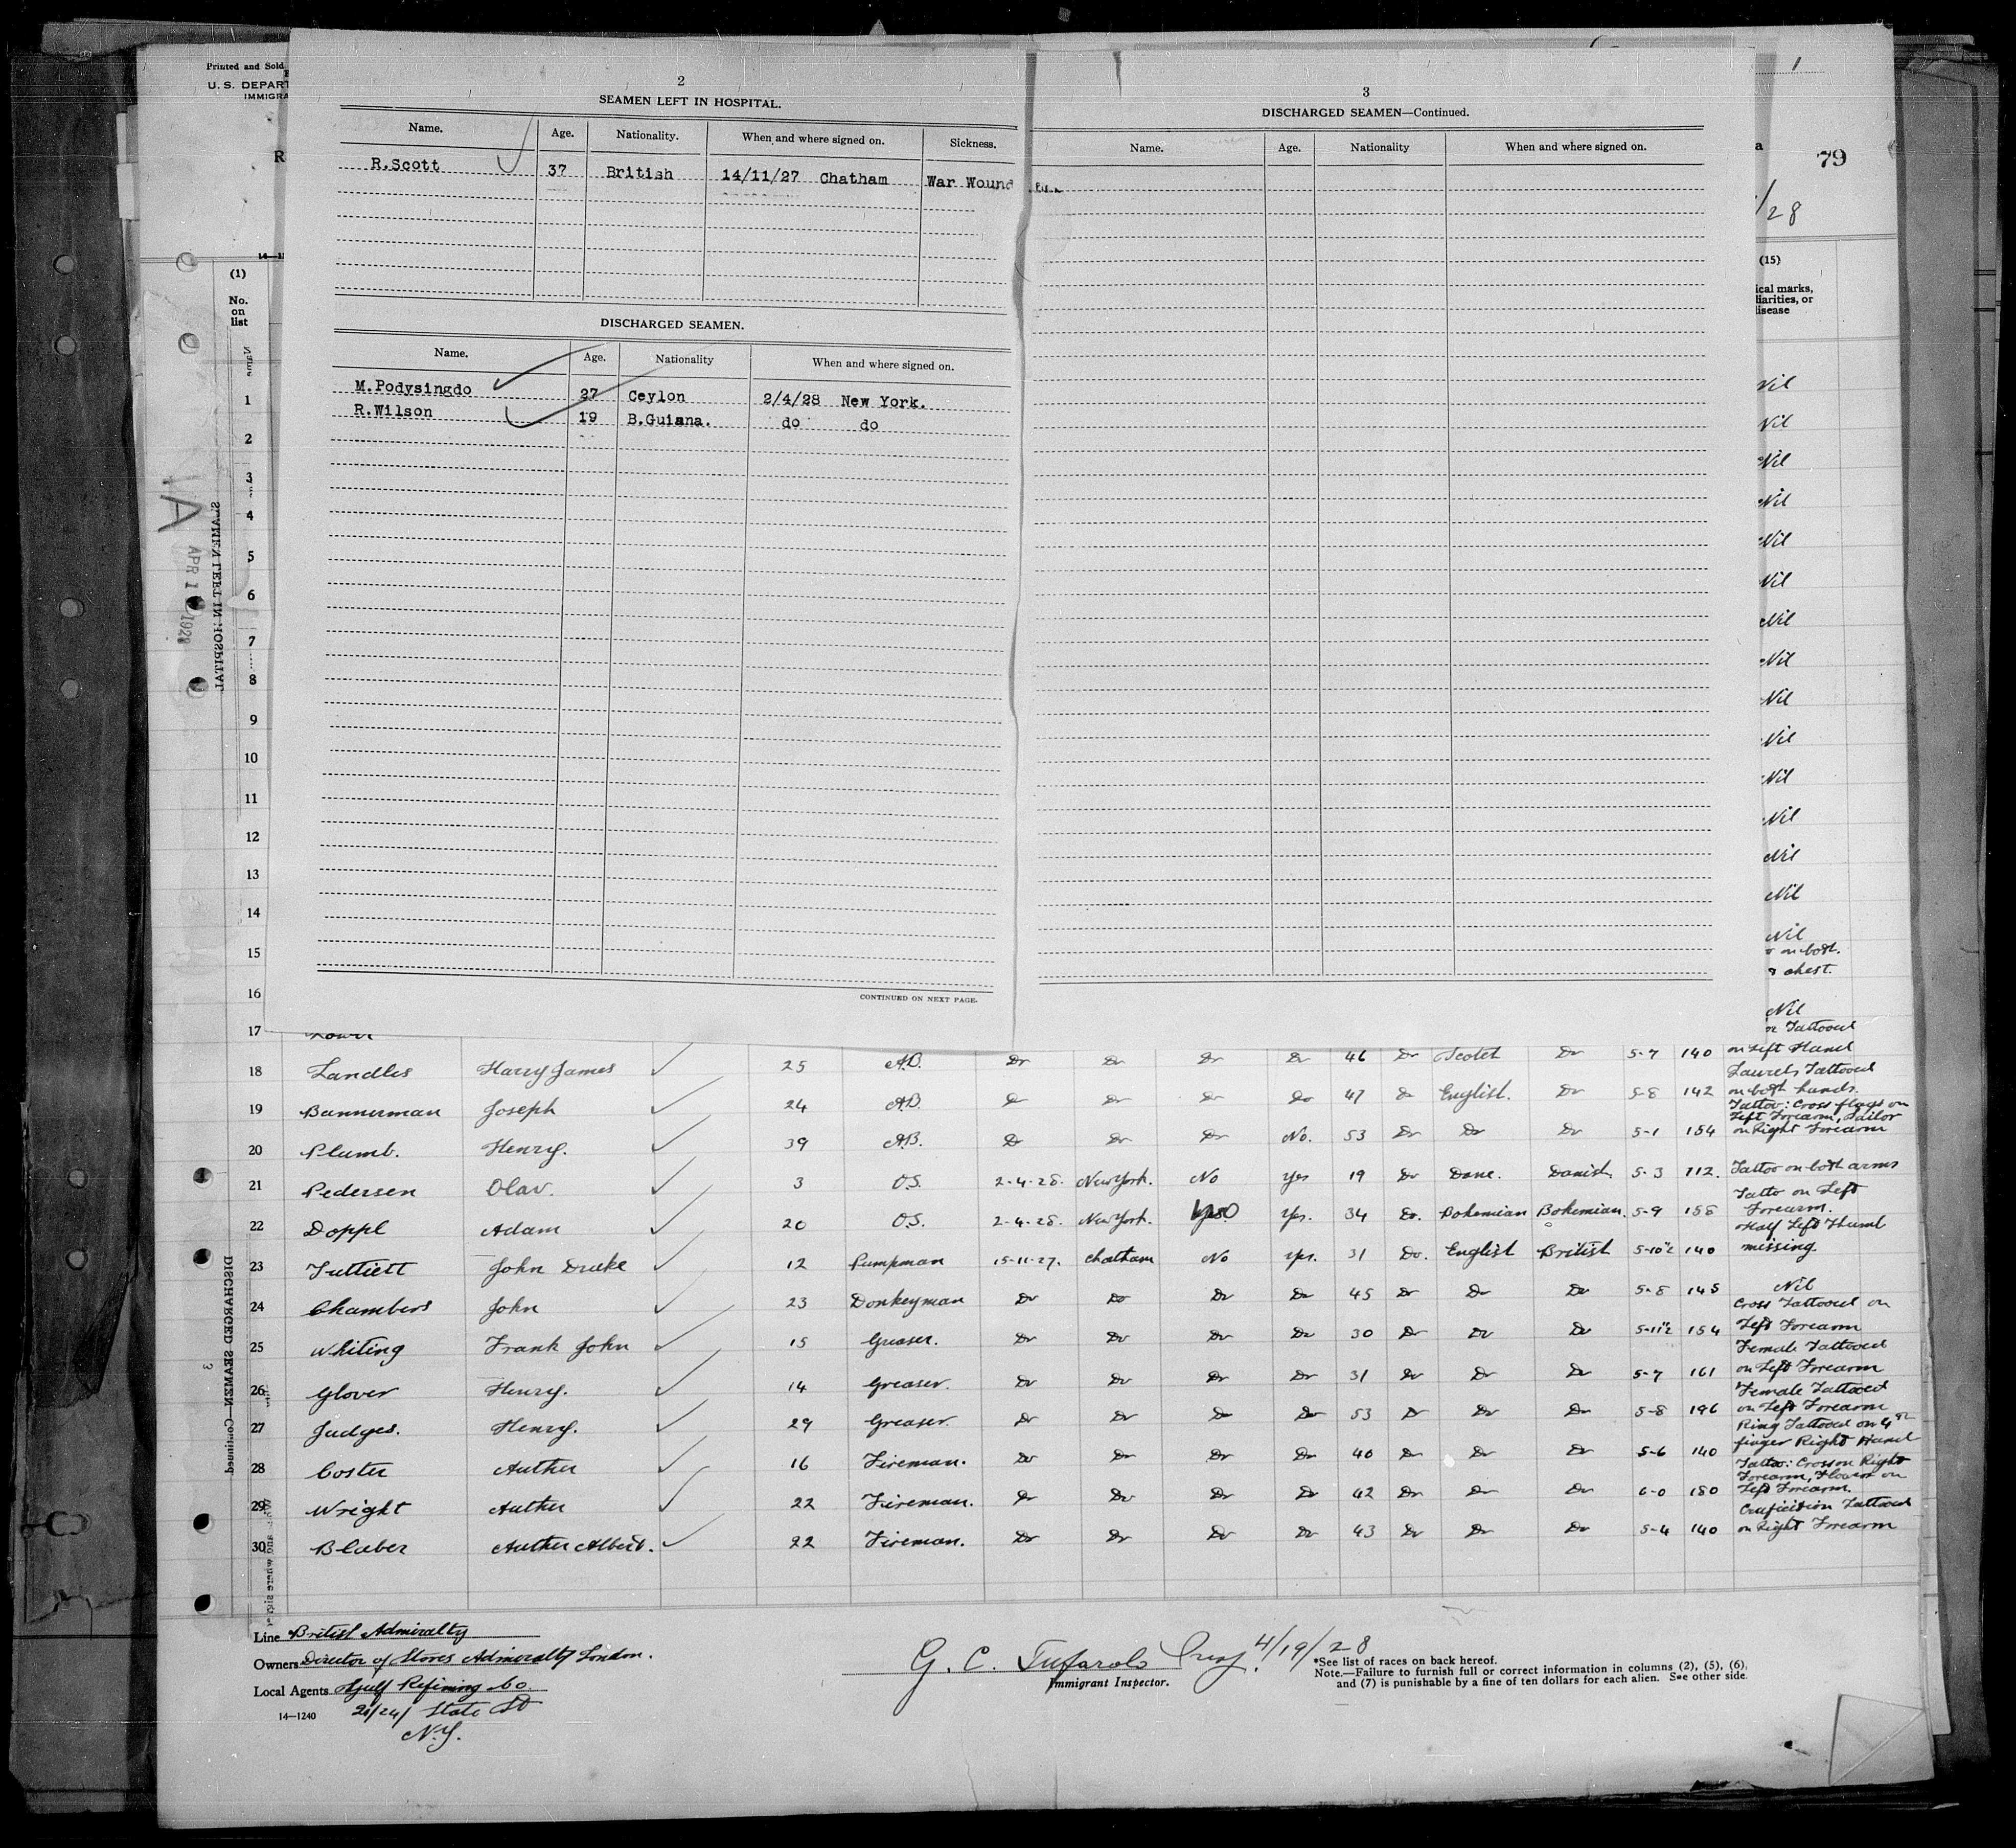 Printed and Sold
U. S. DEPART
IMMIGRA
R
2
SEAMEN LEFT IN HOSPITAL.
Name. Age. Nationality. When and where signed on. Sickness.
R.Scott 37 British 14/11/27 Chatham War Wound
DISCHARGED SEAMEN.
Name. Age. Nationality When and where signed on.
M.Podysingdo 27 Ceylon 2/4/28 New York.
R.Wilson 19 B.Guiana. do do
CONTINUED ON NEXT PAGE.
3
DISCHARGED SEAMEN—Continued.
Name. Age. Nationality When and where signed on.
1
a
79
/28
(15)
ical marks,
liarities, or
disease
(1)
No.
on
list
1 Nil
2 Nil
3 Nil
4 Nil
5 Nil
6 Nil
7 Nil
8 Nil
9 Nil
10 Nil
11 Nil
12 Nil
13 Nil
14 Nil
15 Nil
on both.
& chest.
16 Nil
17 Tattooed
on Left Hand
18 Landles Harry James 25 A.B. Do Do Do Do 46 Do Scotch Do 5-7 140
Laurels Tattooed
on both hands.
19 Bannerman Joseph 24 AB. Do Do Do Do 47 Do English. Do 5-8 142
Tattoo: Cross flags on
Left Forearm, Sailor
on Right Forearm
20 Plumb. Henry. 39 AB. Do Do Do No. 53 Do Do Do 5-1 154
21 Pedersen Olav. 3 O.S. 2-4-28. New York. No Yes 19 Do Dane. Danish. 5-3 112. Tattoo on both arms
Tatto on Left
Forearm.
22 Doppl Adam 20 O.S. 2-4-28. New York. Yes. 34 Do. Bohemian Bohemian. 5-9 158
Half Left Thumb
missing.
23 Tuttiett John Duke 12 Pumpman 15-11-27. Chatham No Yes. 31 Do. English British 5-10½ 140
24 Chambers John 23 Donkeyman Do Do Do Do 45 Do Do Do 5-8 145 Nil
Cross Tattooed on
Left Forearm
25 Whiting Frank John 15 Greaser. Do Do Do Do 30 Do Do Do 5-11½ 154
Female Tattooed
on Left Forearm
26 Glover Henry. 14 Greaser. Do Do Do Do 31 Do Do Do 5-7 161
Female Tattooed
on Left Forearm
27 Judges. Henry. 29 Greaser. Do Do Do Do 53 Do Do Do 5-8 196
Ring Tattooed on 4th
finger Right Hand
28 Coster Auther 16 Fireman. Do Do Do Do 40 Do Do Do 5-6 140
Tattoo: Cross on Right
Forearm, Flower on
Left Forearm.
29 Wright Auther 22 Fireman. Do Do Do Do 42 Do Do Do 6-0 180
Crucifition Tattooed
on Right Forearm
30 Blaber Auther Albert. 22 Fireman. Do Do Do Do 43 Do Do Do 5-4 140
A
APR 1 1928
SEAMEN LEFT IN HOSPITAL
DISCHARGED SEAMEN—Continued
3
Line British Admiralty
Owners Director of Stores Admiralty London.
Local Agents Gulf Refining Co.
14—1240 State St
N.Y.
G. C. Tufarolo Insp. 4/19/28
Immigrant Inspector.
*See list of races on back hereof.
Note.—Failure to furnish full or correct information in columns (2), (5), (6),
and (7) is punishable by a fine of ten dollars for each alien. See other side.